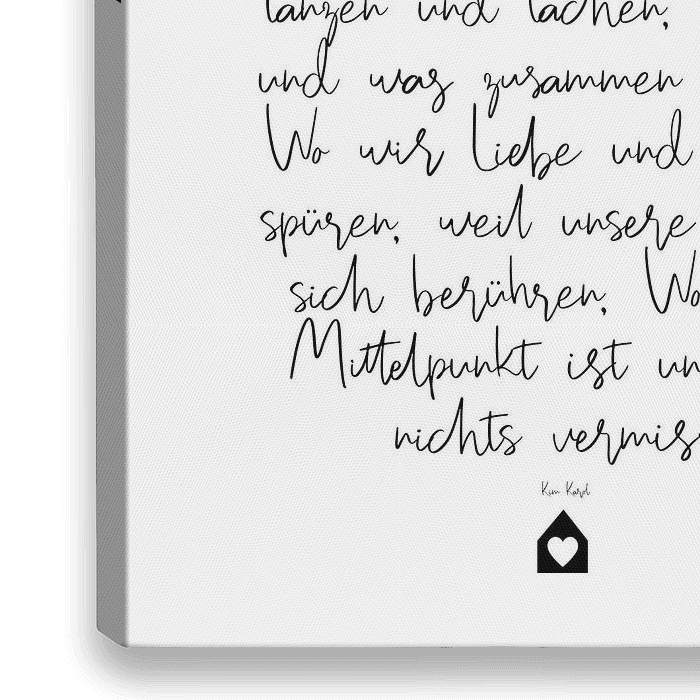 tanzen und lachen,
und was zusammen
Wo wir Liebe und
spüren, weil unsere
sich berühren, Wo
Mittelpunkt ist un
nichts vermis
Kim Kardl